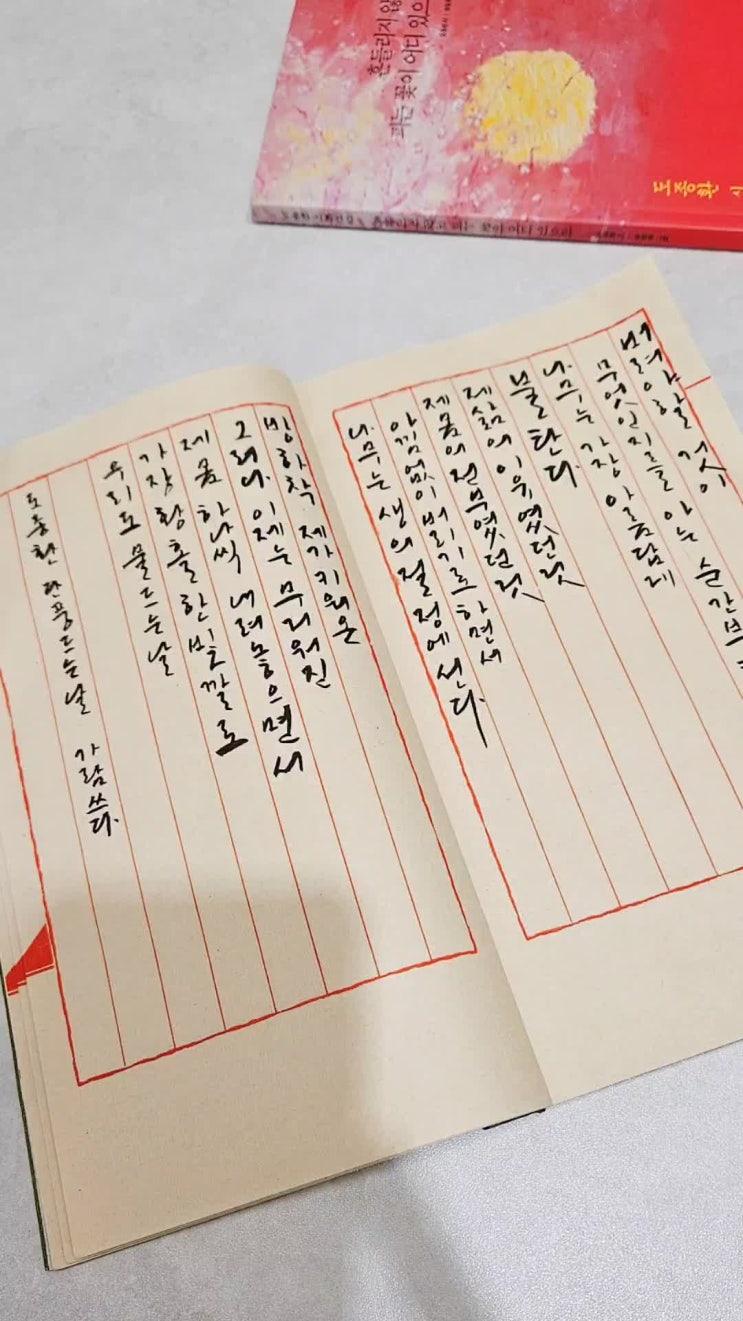 흔들리지 않
피는 꽃이 어디 있으
도종환 시
흔들리지 않고 피는 꽃이 어디 있으랴
버려야할 것이
무엇인지를 아는 순간부
나무는 가장 아름답게
불 탄다.
제삶의 이유였던것
제몸의 전부였던것
아낌없이 버리기로 하면서
나무는 생의 절정에 선다.
방하착 제가 키워온
그러나 이제는 무거워진
제몸 하나씩 내려놓으면서
가장 황홀한 빛깔로
우리도 물드는날
도종환 단풍드는날 가람쓰다.